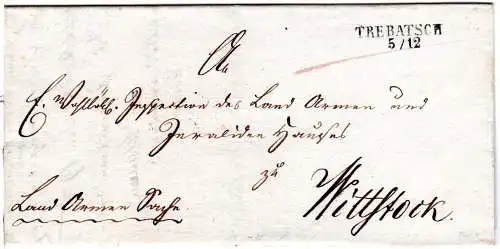 TREBATSCH
5/12
An
E. Wohllöbl. Inspection des Land Armen und
Invaliden Hauses
zu
Wittstock.
Land Armen Sache